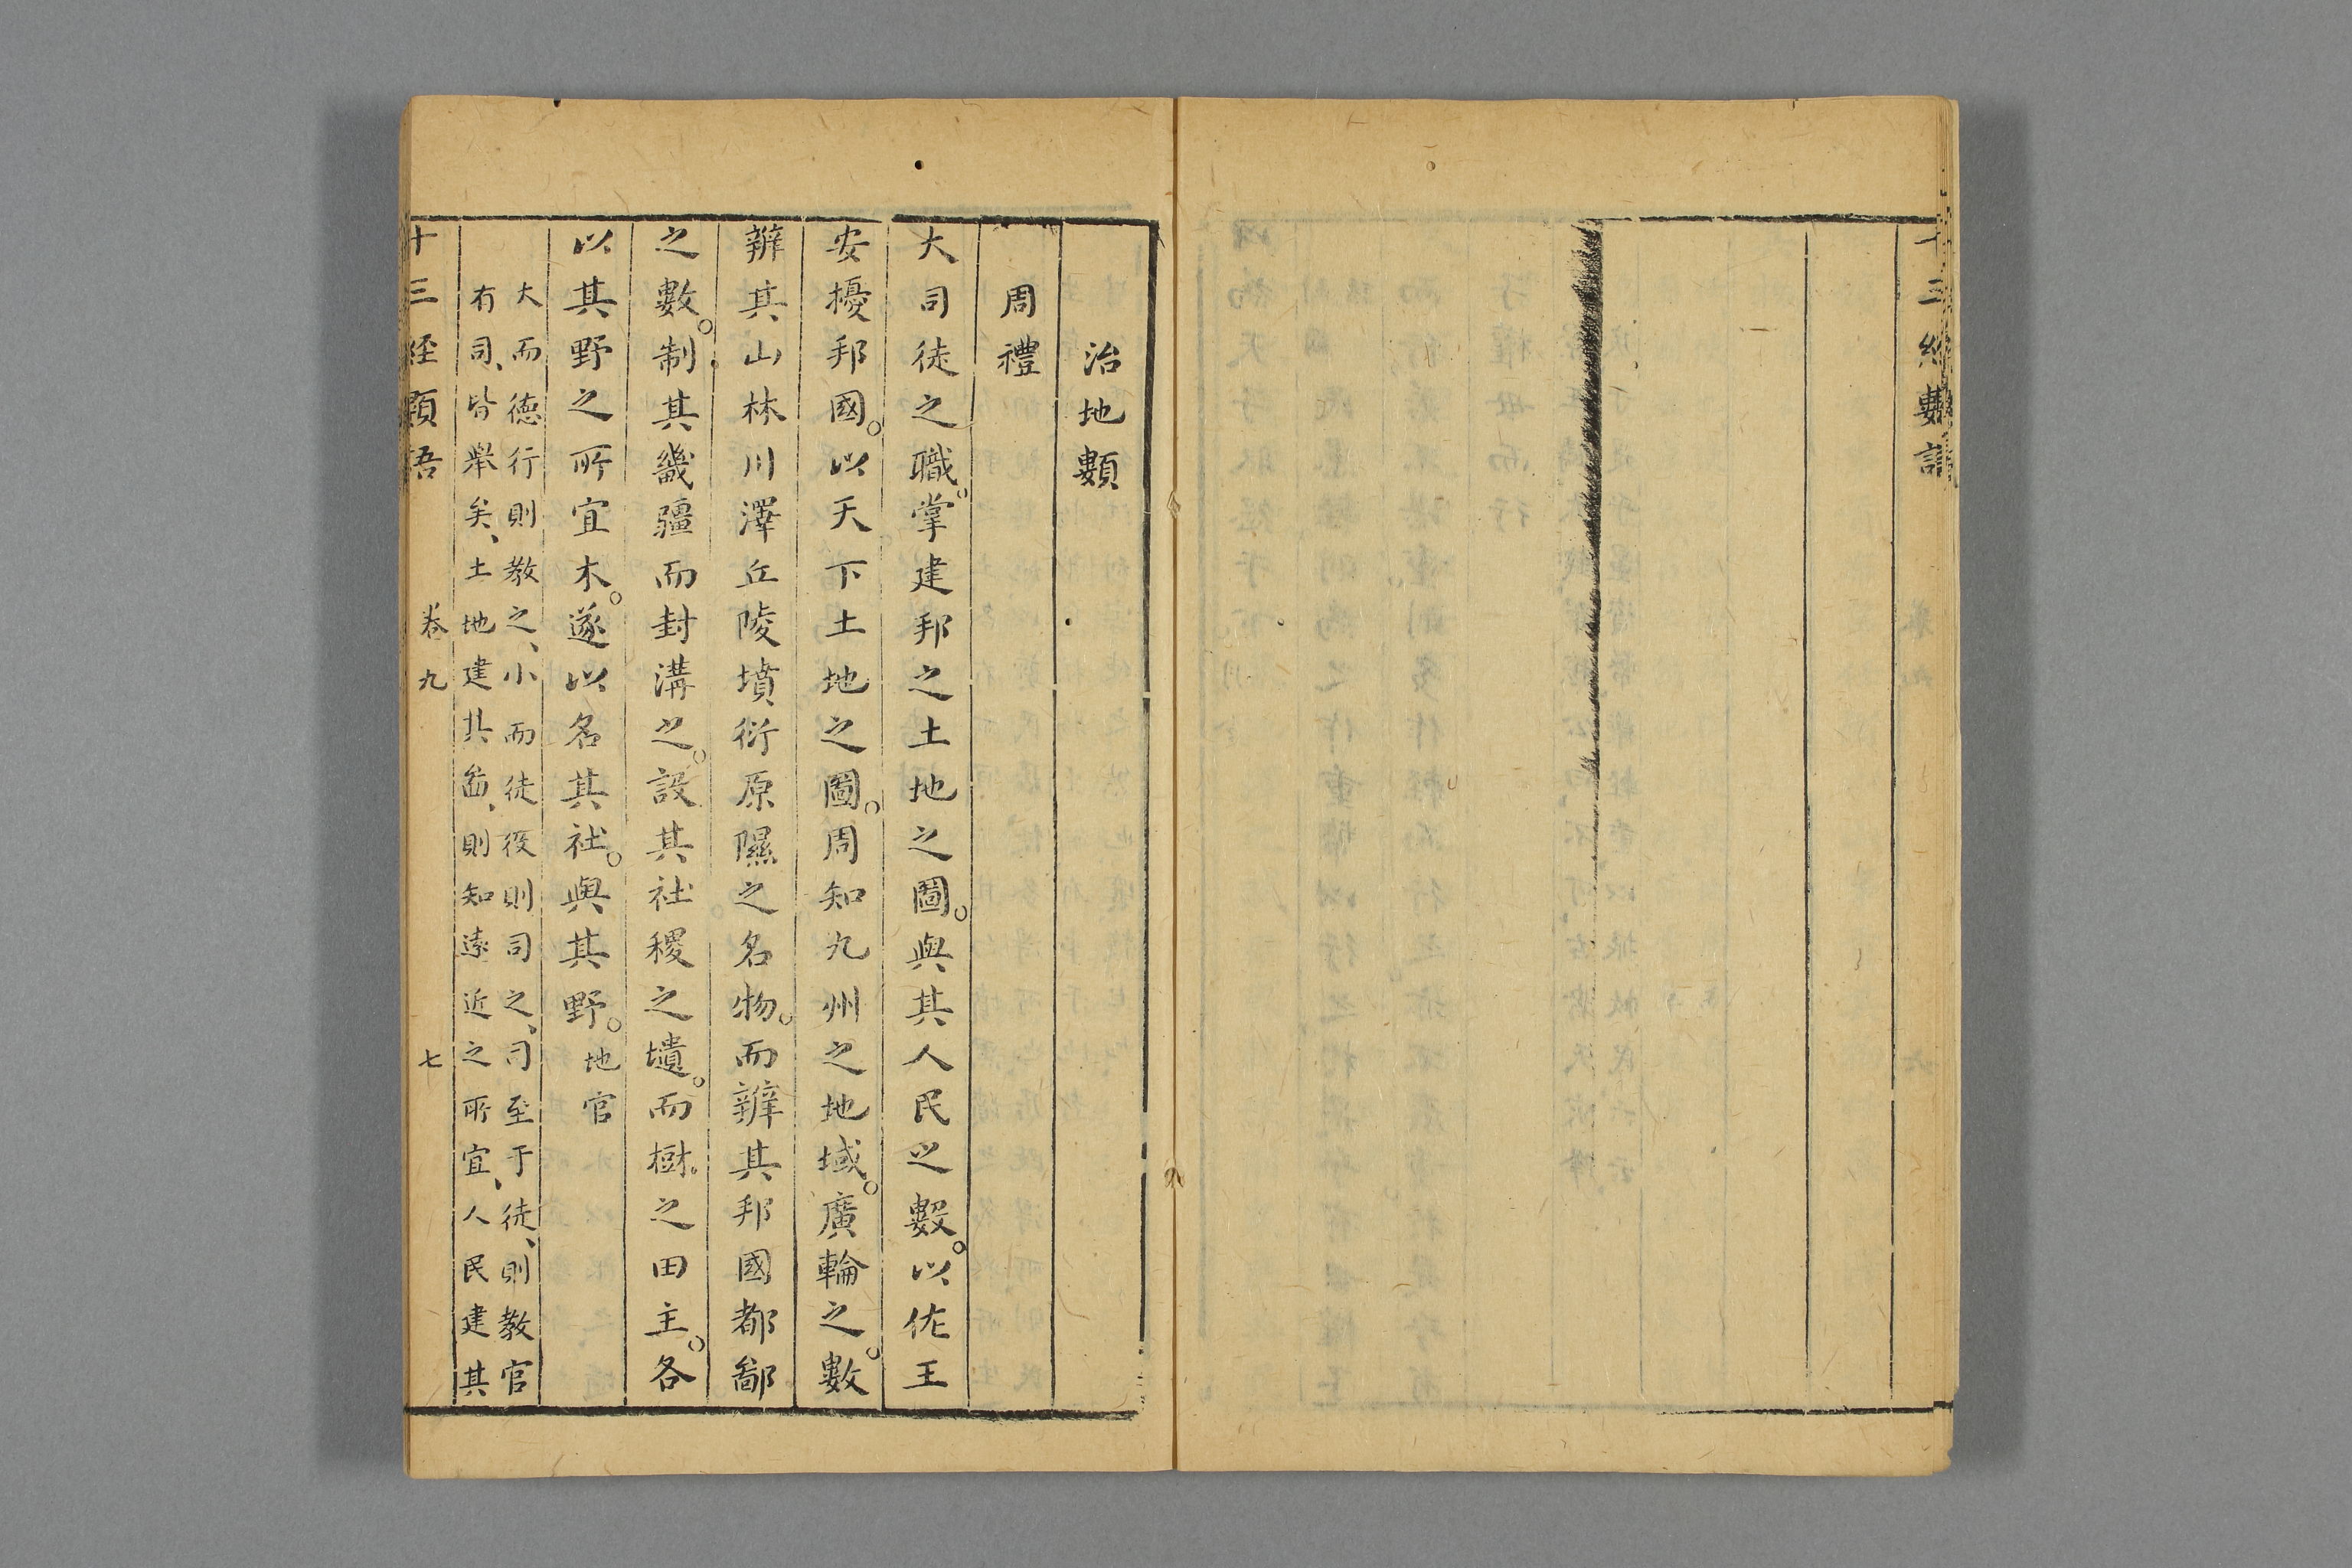 治地類
周禮
大司徒之職。掌建邦之土地之圖。與其人民之數。以佐王
安擾邦國。以天下土地之圖。周知九州之地域。廣輪之。數
辨其山林川澤丘陵墳衍原隰之名物。而辨其邦國都鄙
之數。制其畿疆而封溝之。設其社稷之壝。而樹。之田主。各
以其野之所宜木。遂以名其社。與其野。地官
大而德行則教之、小而徒役則司之、司至于徒、則教官
有司、皆舉矣、土地建其啚、則知遠近之所宜、人民建其
十三經類語 卷九 七